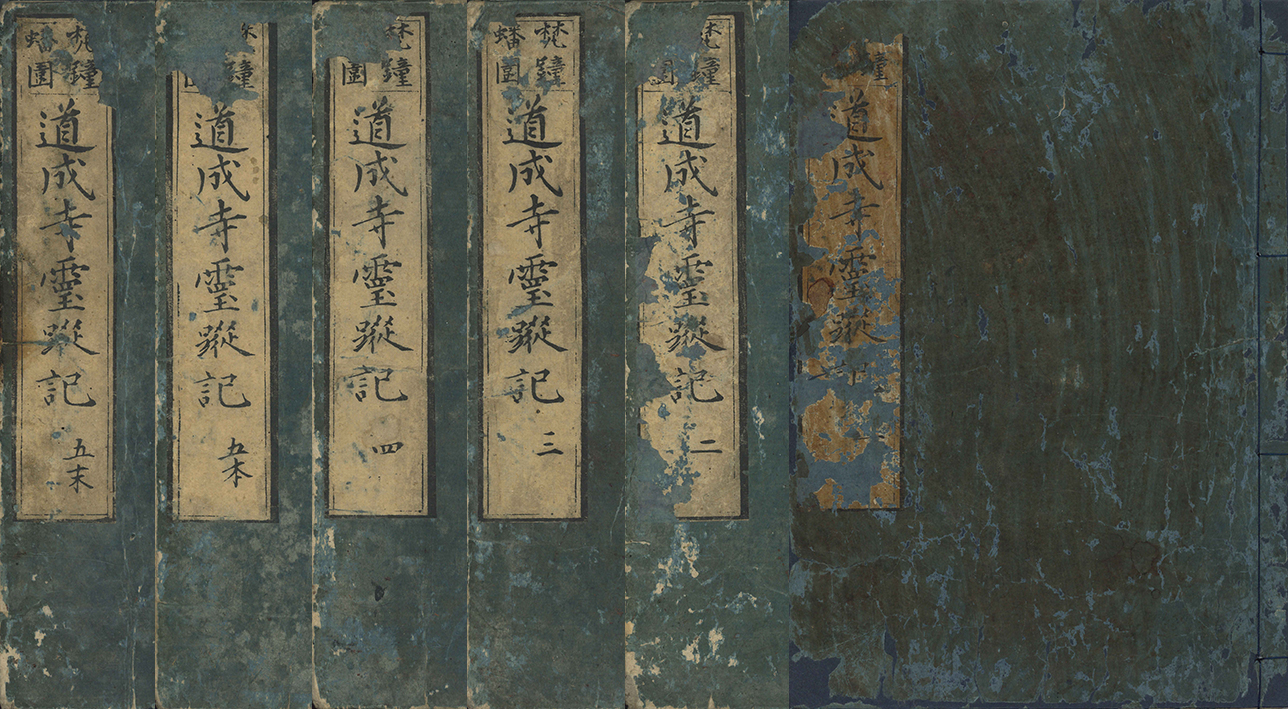 鐘
道成寺靈蹤記
梵鐘
圍
道成寺靈蹤記
二
梵鐘
蟠圍
道成寺靈蹤記
三
梵鐘
圍
道成寺靈蹤記
四
鐘
道成寺靈蹤記
五本
梵鐘
蟠圍
道成寺靈蹤記
五末